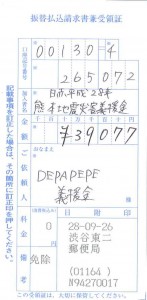 振替払込請求書兼受領証
口座記号番号
00130 4
265072
加入者名
日赤平成28年
熊本地震災害義援金
金額
¥39077
ご依頼人
おなまえ
DEPAPEPE
義援金
料金
0
日附印
28-09-26
渋谷東二
郵便局
備考
免除
(01164)
N94270017
記載事項を訂正した場合は、その箇所に訂正印を押してください。
この受領証は、大切に保管してください。